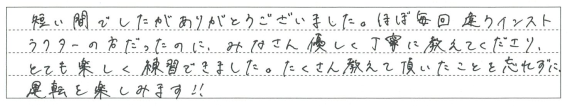 短い間でしたがありがとうございました。ほぼ毎回違うインスト
ラクターの方だったのに、みなさん優しく丁寧に教えてくださり、
とても楽しく練習できました。たくさん教えて頂いたことを忘れずに
運転を楽しみます!!